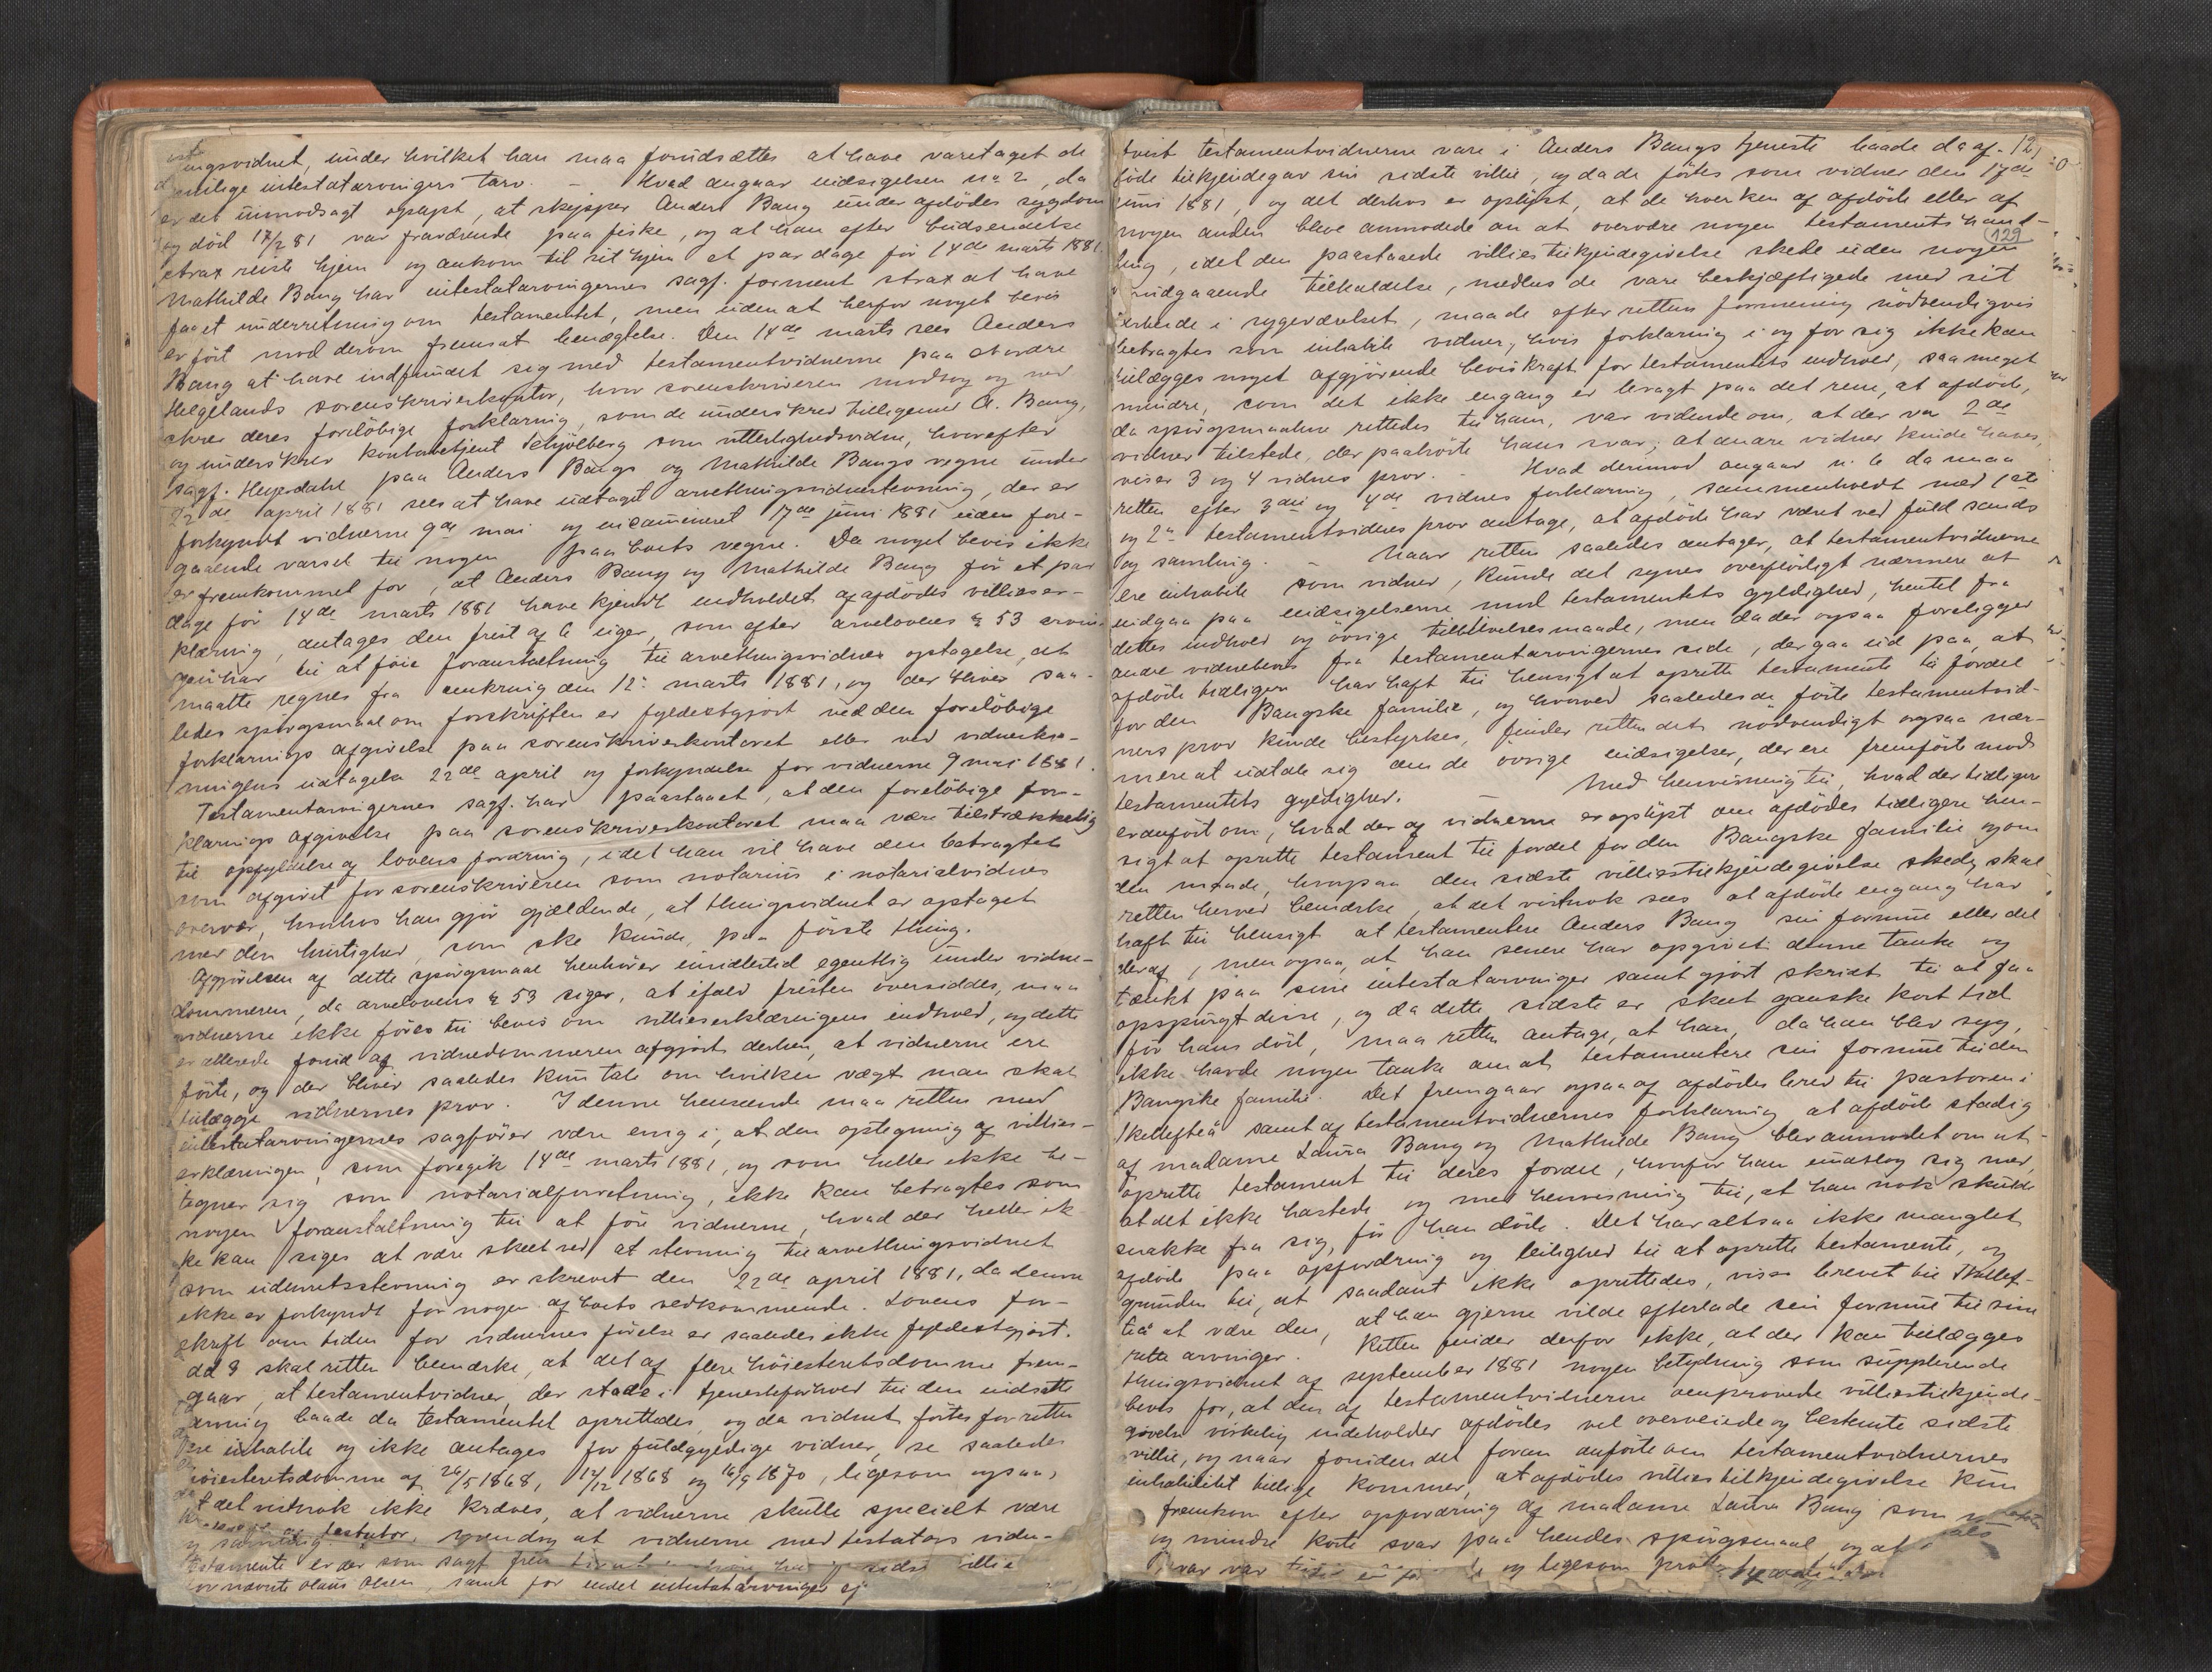 ingsvidnet, under hvilket han maa forudsættes at have varetaget de
samtlige intestatarvingers tarv. – Hvad angaar indsigelsen no 2, da
er det uimodsagt oplyst, at skipper Anders Bang under afdødes sygdom
og død 17/2 81 var fraværende paa fiske, og at han efter budsendelse
strax reiste hjem og ankom til sit hjem et par dage før 14de marts 1881.
Mathilde Bang har intestatarvingernes sagf. forment strax at have
faaet underretning om testamentet, men uden at herfor noget bevis
er ført mod derom fremsat benægtelse. Den 14de marts sees Anders
Bang at have indfundet sig med testamentvidnerne paa søndre
Helgelands sorenskriverkontor, hvor sorenskriveren modtog og ned
skrev deres foreløbige forklaring, som de underskrev tilligemed A. Bang,
og underskrev kontorbetjent Schjölberg som vitterlighedsvidne, hvorefter
sagf. Heyerdahl paa Anders Bangs og Mathilde Bangs vegne under
22de april 1881 sees at have udtaget arvethingsvidnestevning, der er
forkyndt vidnerne 9de mai og examineret 17de juni 1881 uden fore-
gaaende varsel til nogen paa boets vegne. Da noget bevis ikke
er fremkommet for, at Anders Bang og Mathilde Bang før et par
dage før 14de marts 1881 have kjendt indholdet af afdødes villieser-
klæring, antages den frist af 6 uger, som efter arvelovens § 53 arvin-
gen har til at føie foranstaltning til arvethingsvidnes optagelse, at
maatte regnes fra omkring den 12te marts 1881, og der bliver saa-
ledes spørgsmaal om forskriften er fyldestgjort ved den foreløbige
forklarings afgivelse paa sorenskriverkontoret eller ved vidnestev-
ningens udtagelse 22de april og forkyndelse for vidnerne 9 mai 1881.
Testamentarvingernes sagf. har paastaaet, at den foreløbige for-
klarings afgivelse paa sorenskriverkontoret maa være tilstrækkelig
til opfyldelse af lovens fordring, idet han vil have den betragtet
som afgivet for sorenskriveren som notarius i notarialvidnes
overvær, hvorhos han gjør gjældende, at thingsvidnet er optaget
med den hurtighed, som ske kunde, paa første thing.
Afgjørelsen af dette spørgsmaal henhører imidlertid egentlig under vidne-
dommeren, da arvelovens § 53 siger, at ifald fristen oversiddes, maa
vidnerne ikke føres til bevis om villieserklæringens indhold, og dette
er allerede forud af vidnedommeren afgjort derhen, at vidnerne ere
førte, og der bliver saaledes kun tale om hvilken vægt man skal
tillægge vidnernes prov. I denne henseende maa retten med
intestatarvingernes sagfører være enig i, at den optegning af villies-
erklæringen, som foregik 14de marts 1881, og som heller ikke be-
tegner sig som notarialforretning, ikke kan betragtes som
nogen foranstaltning til at føre vidnerne, hvad der heller ik-
ke kan siges at være skeet ved at stevning til arvethingsvidnet
som udenretsstevning er skrevet den 22de april 1881, da denne
ikke er forkyndt for nogen af boets vedkommende. Lovens for-
skrift om tiden for vidnernes førelse er saaledes ikke fyldestgjort.
ad 3 skal retten bemærke, at det af flere høiesteretsdomme frem-
gaar, at testamentvidner, der stode i tjenesteforhold til den indsatte
arving baade da testamentet oprettedes, og da vidnet førtes for retten
ere inhabile og ikke antages for fuldgyldige vidner, se saaledes
høiesteretsdomme af 26/5 1868, 17/12 1868 og 16/9 1870, ligesom ogsaa,
at det vistnok ikke kræves, at vidnerne skulle specielt være
af testator, at vidnerne med testators vidn-
testamente er der som sagt sidste villie
fornævnte Olaus Olsen, samt for endel intestatarvinger
tvist testamentvidnerne vare i Anders Bangs tjeneste baade da af-
døde tilkjendegav sin sidste villie, og da de førtes som vidner den 17de
juni 1881, og det derhos er oplyst, at de hverken af afdøde eller af
nogen anden bleve anmodede om at overvære nogen testamentshand-
129
ling, idet den paastaaede villiestilkjendegivelse skede uden nogen
forudgaaende tilkaldelse, medens de vare beskjæftigede med sit
arbeide i sygeværelset, maa de efter rettens formening nødvendigvis
betragtes som inhabile vidner, hvis forklaring i og for sig ikke kan
tillægges noget afgjørende beviskraft for testamentets indhold, saa meget
mindre, som det ikke engang er bragt paa det rene, at afdøde,
da spørgsmaalene rettedes til ham, var vidende om, at der var 2de
vidner tilstede, der paahørte hans svar; at andre vidner kunde haves,
viser 3 og 4 vidnes prov. – Hvad derimod angaar n. 6 da maa
retten efter 3die og 4de vidnes forklaring, sammenholdt med 1ste
og 2det testamentvidnes prov antage, at afdøde har været ved fuld sands
og samling. Naar retten saaledes antager, at testamentvidnerne
ere inhabile som vidner, kunde det synes overflødigt nærmere at
indgaa paa indsigelserne mod testamentets gyldighed, hentet fra
dettes indhold og øvrige tilblivelsesmaade, men da der ogsaa foreligger
andre vidnebeviser fra testamentarvingernes side, der gaa ud paa, at
afdøde tidligere har haft til hensigt at oprette testamente til fordel
for den Bangske familie, og hvorved saaledes de førte testamentvid-
ners prov kunde bestyrkes, finder retten det nødvendigt ogsaa nær-
mere at udtale sig om de øvrige indsigelser, der ere fremførte mod
testamentets gyldighed. – Med henvisning til, hvad der tidligere
er anført om, hvad der af vidnerne er oplyst om afdødes tidligere hen-
sigt at oprette testament til fordel for den Bangske familie, og om
den maade, hvorpaa den sidste villiestilkjendegivelse skede, skal
retten herved bemærke, at det vistnok sees at afdøde engang har
haft til hensigt at testamentere Anders Bang sin formue eller del
deraf, men ogsaa, at han senere har opgivet denne tanke og
tænkt paa sine intestatarvinger samt gjort skridt til at faa
opspurgt disse, og da dette sidste er skeet ganske kort tid
før hans død, maa retten antage, at han, da han blev syg,
ikke havde nogen tanke om at testamentere sin formue til den
Bangske familie. Det fremgaar ogsaa af afdødes brev til pastoren i
Skellefteå samt af testamentvidnernes forklaring at afdøde stadig
af madame Laura Bang og Mathilde Bang blev anmodet om at
oprette testament til deres fordel, hvorfor han undslog sig med,
at det ikke hastede og med henvisning til, at han nok skulde
snakke fra sig, før han døde. Det har altsaa ikke manglet
afdøde paa opfordring og leilighed til at oprette testamente, og
grunden til, at saadant ikke oprettedes, viser brevet til Skellef-
teå at være den, at han gjerne vilde efterlade sin formue til sine
rette arvinger. Retten finder derfor ikke, at der kan tillægges
thingsvidnet af september 1881 nogen betydning som supplerende
bevis for, at den af testamentvidnerne omprovede villiestilkjende-
givelse virkelig indeholder afdødes vel overveiede og bestemte sidste
villie, og naar foruden det foran anførte om testamentvidnernes
inhabilitet tillige kommer, at afdødes villiestilkjendegivelse kun
fremkom efter opfordring af madame Laura Bang som
og mindre korte svar paa hendes spørgsmaal, og at
svar var og ligesom